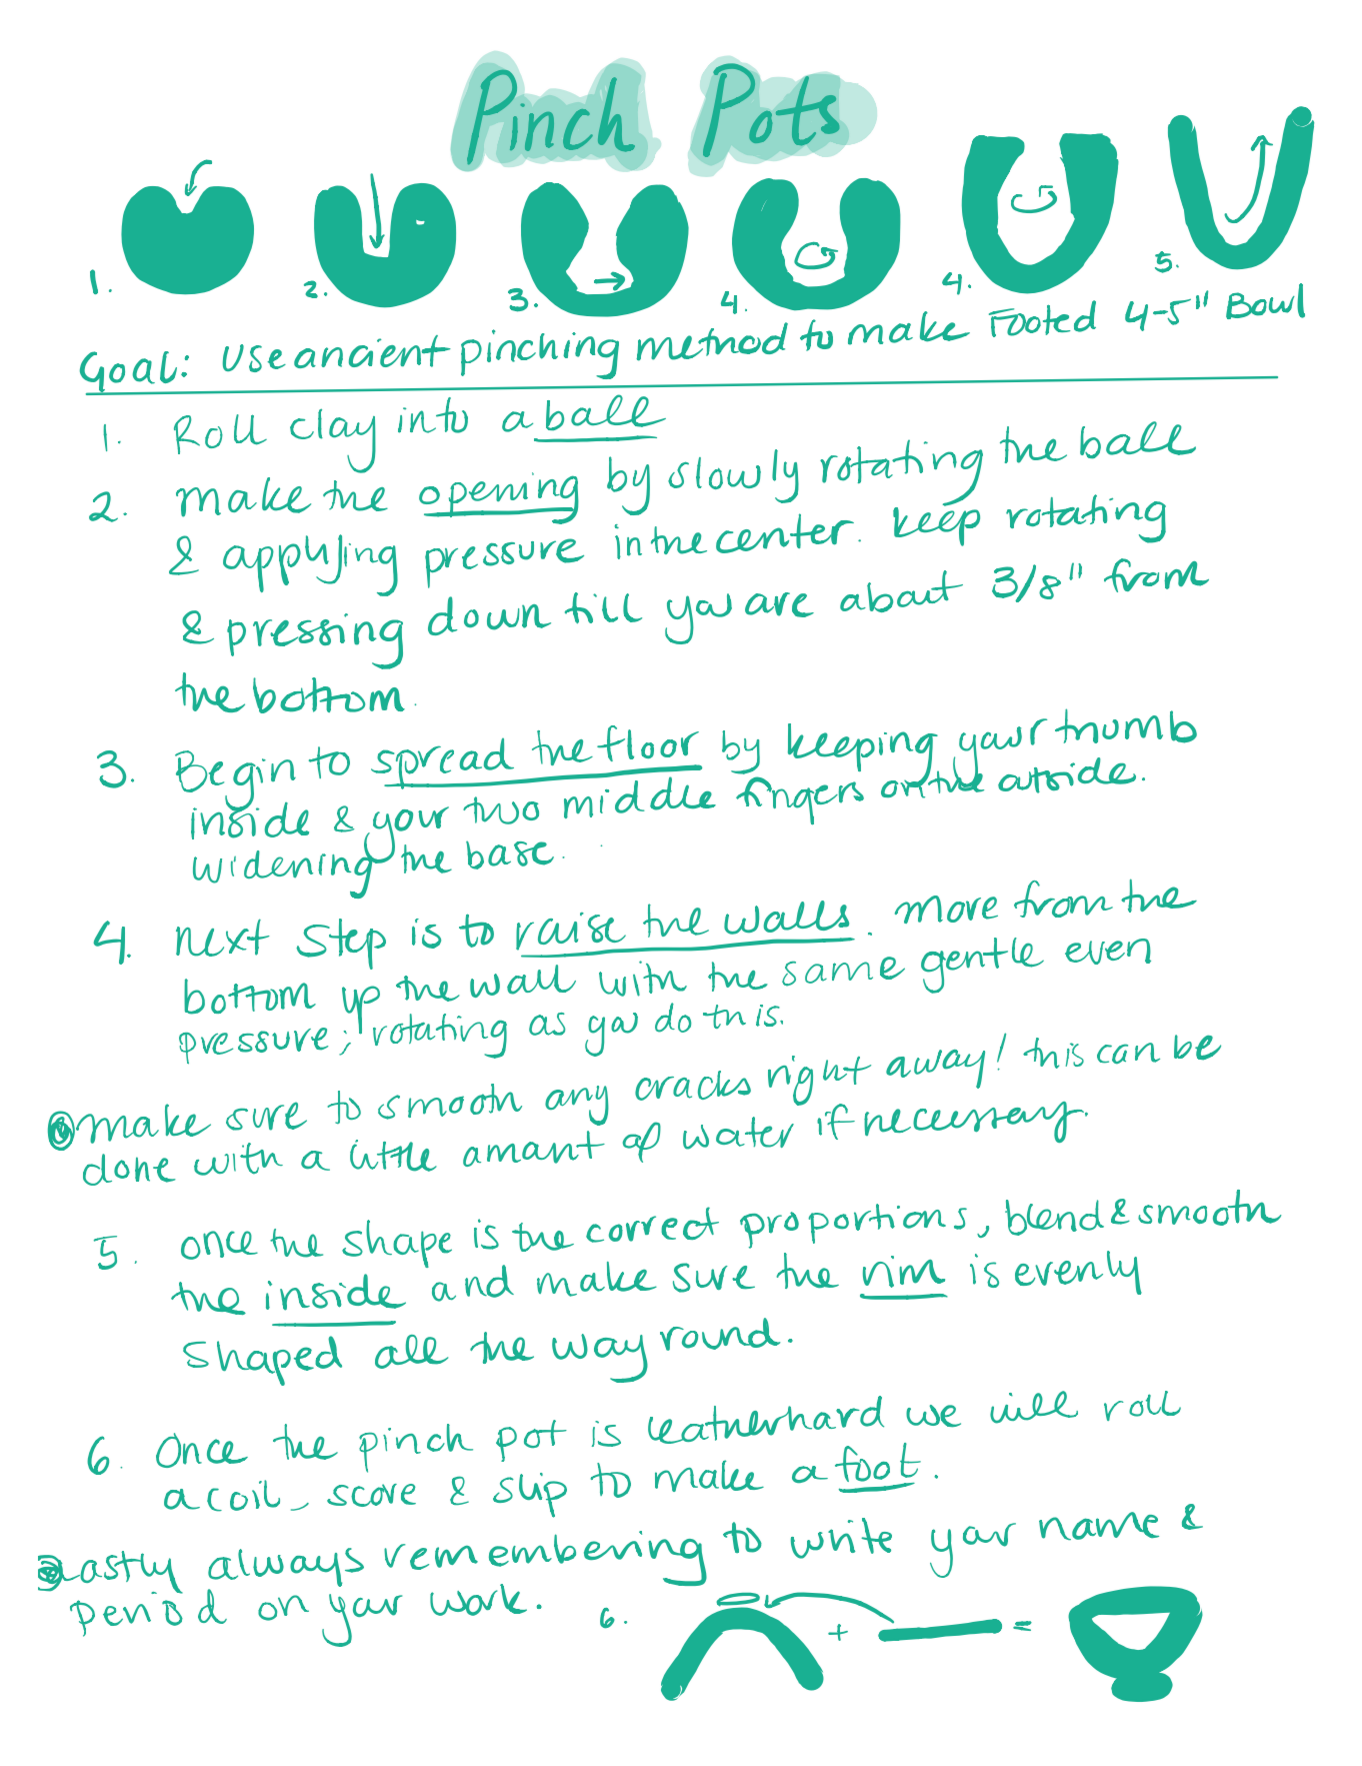 Pinch Pots
1. 2. 3. 4. 4. 5.
Goal: Use ancient pinching method to make Footed 4-5" Bowl
1. Roll clay into a ball
2. make the opening by slowly rotating the ball
& applying pressure in the center. keep rotating
& pressing down till you are about 3/8" from
the bottom.
3. Begin to spread the floor by keeping your thumb
inside & your two middle fingers on the outside.
widening the base.
4. next step is to raise the walls. more from the
bottom up the wall with the same gentle even
pressure; rotating as you do this.
make sure to smooth any cracks right away! this can be
done with a little amount of water if necessary.
5. once the shape is the correct proportions, blend & smooth
the inside and make sure the rim is evenly
shaped all the way round.
6. Once the pinch pot is leatherhard we will roll
a coil, score & slip to make a foot.
Lastly always remembering to write your name &
Period on your work.
6. + =